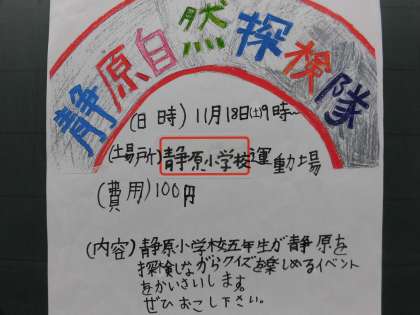 静原自然探検隊
(日時) 11月18日(土)9時~
(場所) 静原小学校運動場
(費用) 100円
(内容) 静原小学校五年生が静原を
探検しながらクイズを楽しめるイベント
をかいさいします。
ぜひおこし下さい。